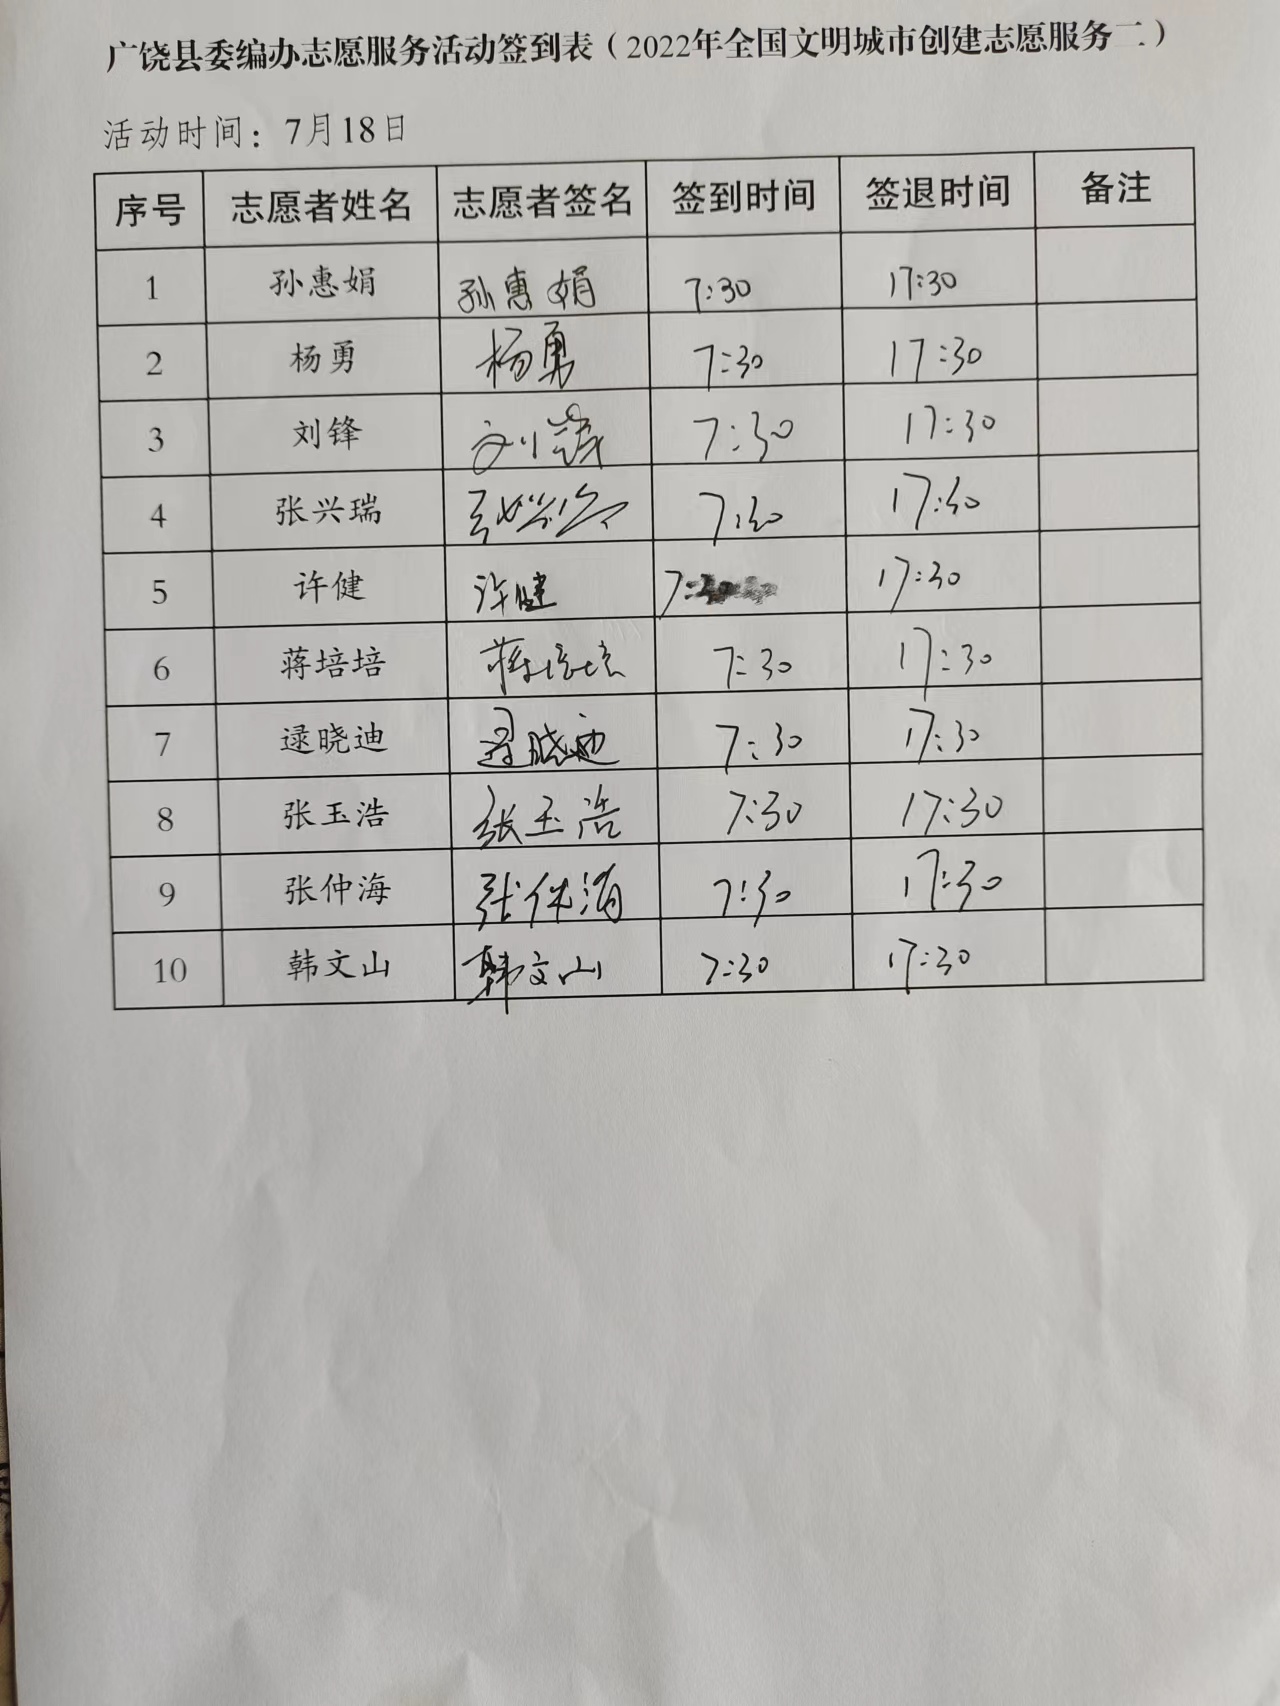 广饶县委编办志愿服务活动签到表（2022年全国文明城市创建志愿服务二）
活动时间：7月18日
序号 志愿者姓名 志愿者签名 签到时间 签退时间 备注
1 孙惠娟 孙惠娟 7:30 17:30
2 杨勇 杨勇 7:30 17:30
3 刘锋 刘锋 7:30 17:30
4 张兴瑞 张兴瑞 7:30 17:30
5 许健 许健 7: 17:30
6 蒋培培 蒋培培 7:30 17:30
7 逯晓迪 逯晓迪 7:30 17:30
8 张玉浩 张玉浩 7:30 17:30
9 张仲海 张仲海 7:30 17:30
10 韩文山 韩文山 7:30 17:30